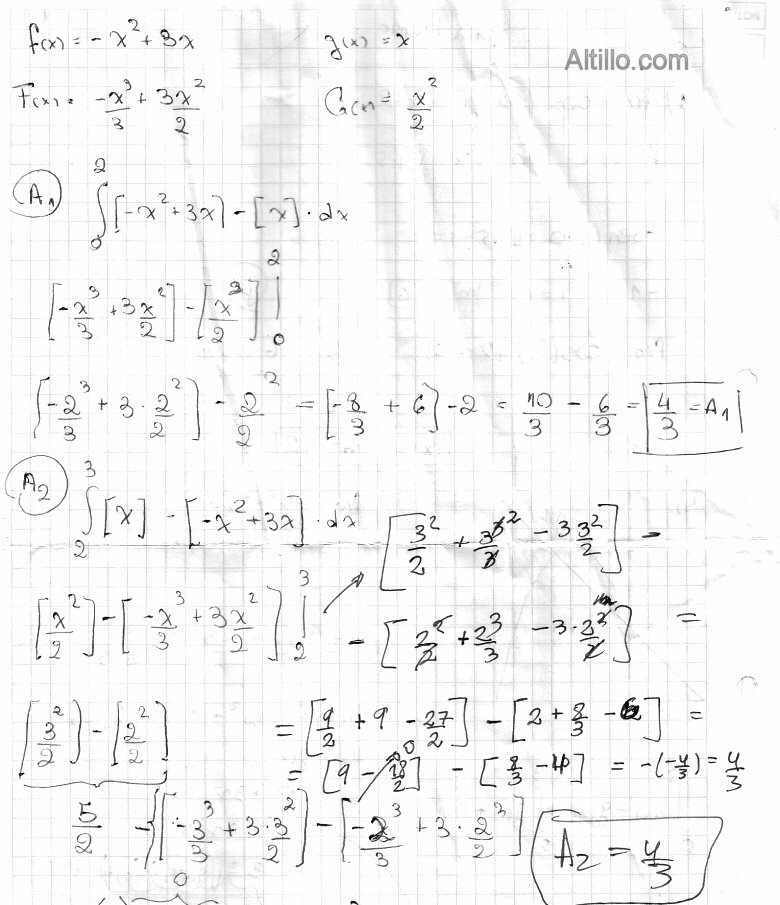 f(x) = -x² + 3x    g(x) = x
Altillo.com
F(x) = -x³/3 + 3x²/2    G(x) = x²/2
A₁ ∫₀² [-x² + 3x] - [x] · dx
[-x³/3 + 3x²/2] - [x²/2] |₀²
[-2³/3 + 3·2²/2] - 2²/2 = [-8/3 + 6] - 2 = 10/3 - 6/3 = 4/3 = A₁
A₂ ∫₂³ [x] - [-x² + 3x] · dx
[3²/2 + 3³/3 - 3 3²/2] -
[x²/2] - [-x³/3 + 3x²/2] |₂³
- [2²/2 + 2³/3 - 3·2²/2] =
[3²/2] - [2²/2] = [9/2 + 9 - 27/2] - [2 + 8/3 - 6] =
= [9 - 18/2] 0 - [8/3 - 4] = -(-4/3) = 4/3
5/2 - {[-3³/3 + 3·3²/2] - [-2³/3 + 3·2³/2]
0
A₂ = 4/3